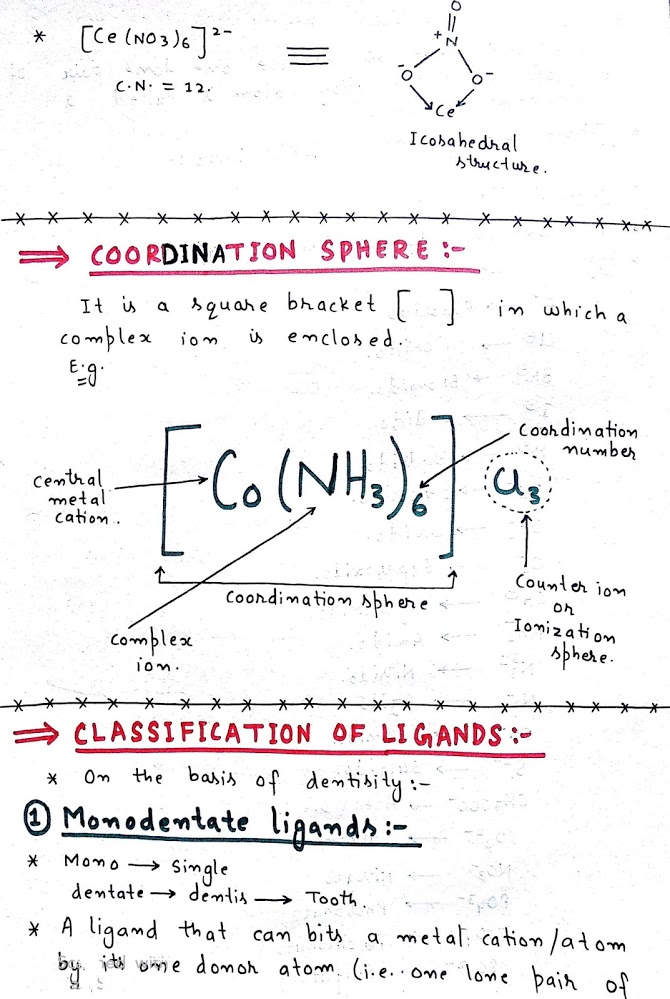 * [Ce (NO3)6]2-
≡
C.N. = 12.
O
+
N
-O O-
Ce
Icosahedral
structure.
⇒ COORDINATION SPHERE :-
It is a square bracket [ ] in which a
complex ion is enclosed.
E.g.
coordination
number
central
metal
cation.
[Co(NH3)6] Cl3
coordination sphere
Counter ion
or
Ionization
sphere.
complex
ion.
⇒ CLASSIFICATION OF LIGANDS:-
* On the basis of dentisity:-
① Monodentate ligands:-
* Mono → Single
dentate → dentis → Tooth.
* A ligand that can bits a metal cation/atom
by its one donor atom (i.e. one lone pair of